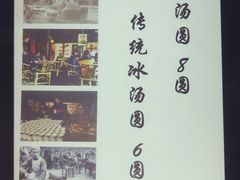 汤圆 8圆
传统冰汤圆 6圆